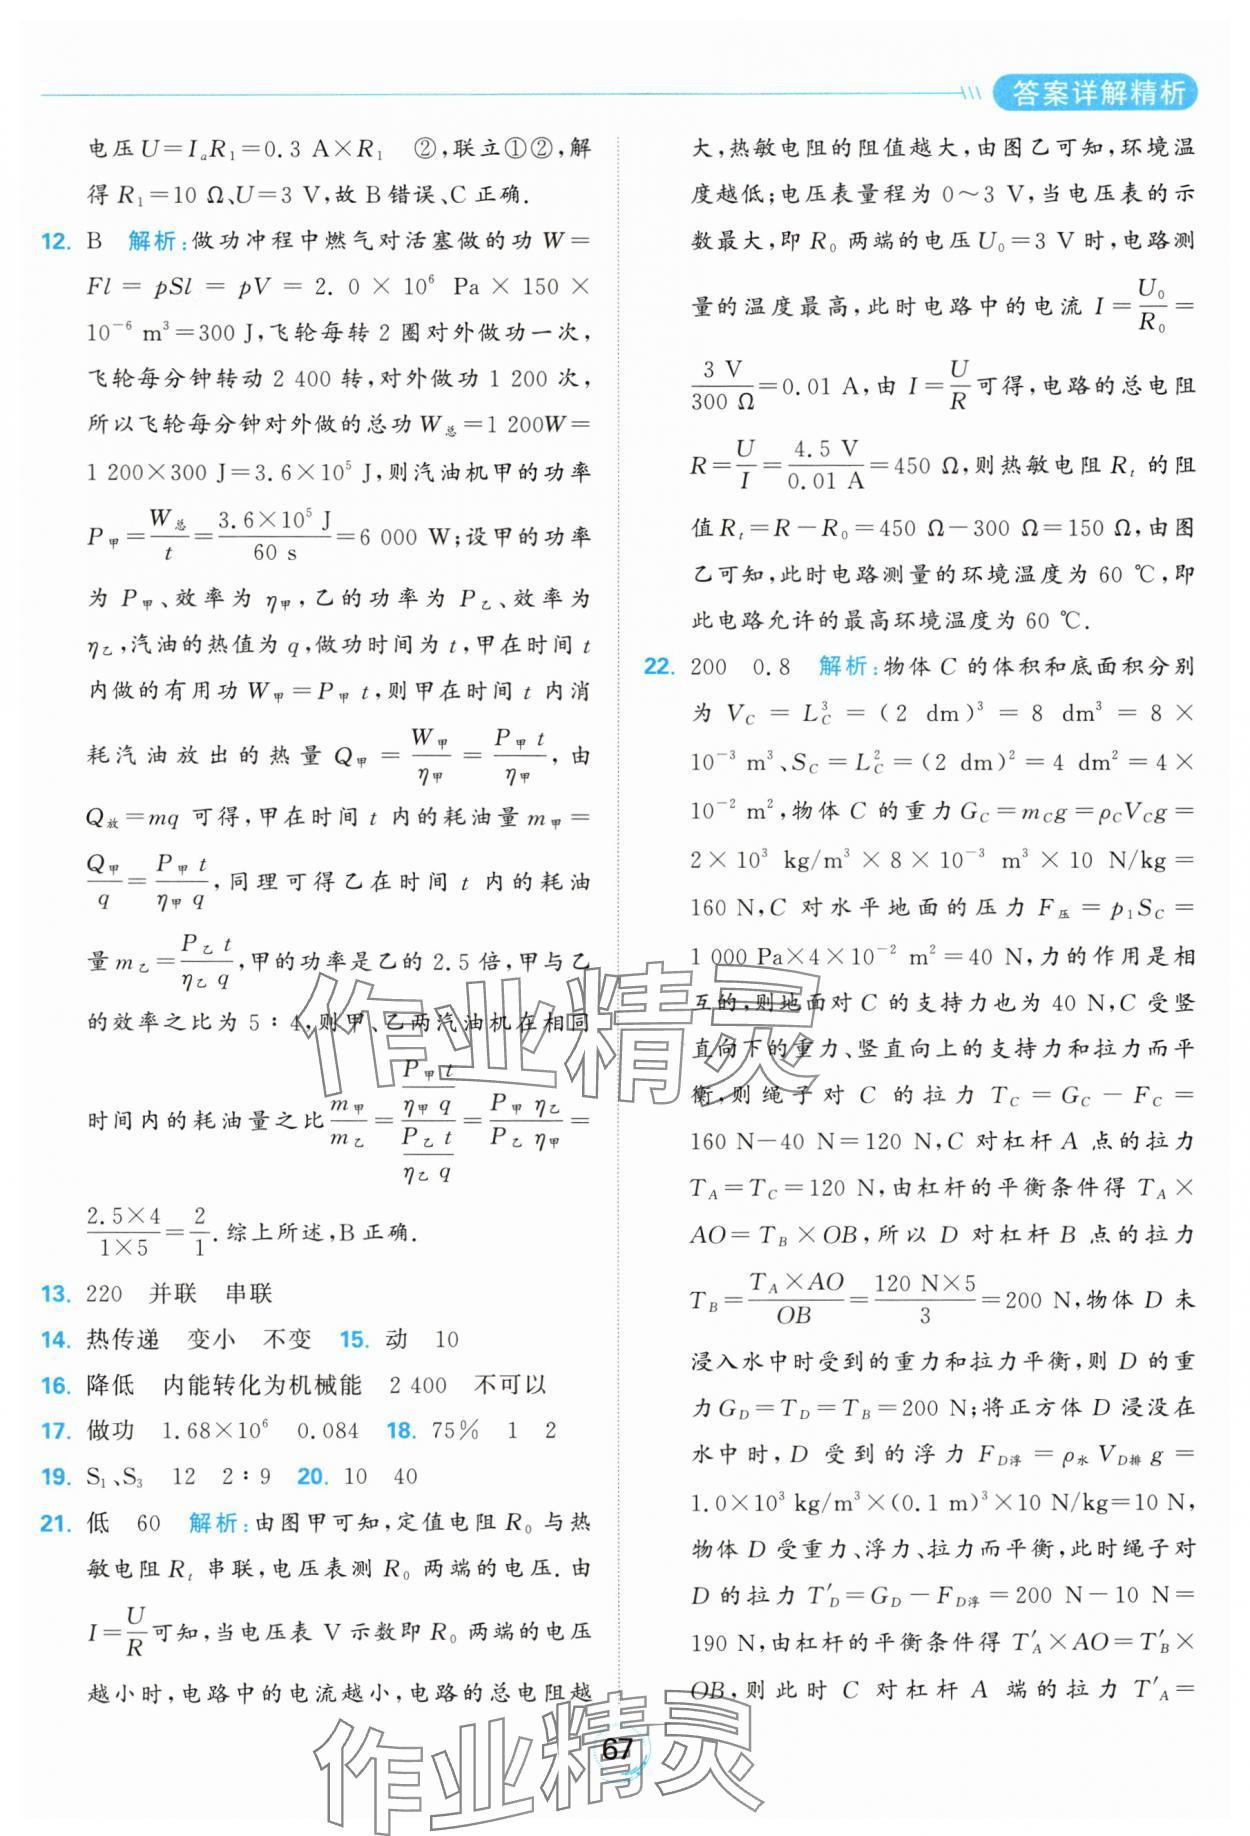 答案详解精析
电压U=IₐR₁=0.3 A×R₁ ②,联立①②,解
得R₁=10 Ω、U=3 V,故B错误、C正确.
12. B 解析:做功冲程中燃气对活塞做的功W=
Fl=pSl=pV=2.0×10⁶ Pa×150×
10⁻⁶ m³=300 J,飞轮每转2圈对外做功一次,
飞轮每分钟转动2 400转,对外做功1 200次,
所以飞轮每分钟对外做的总功W总=1 200W=
1 200×300 J=3.6×10⁵ J,则汽油机甲的功率
P甲=W总/t=3.6×10⁵ J/60 s=6 000 W;设甲的功率
为P甲、效率为η甲,乙的功率为P乙、效率为
η乙,汽油的热值为q,做功时间为t,甲在时间t
内做的有用功W甲=P甲t,则甲在时间t内消
耗汽油放出的热量Q甲=W甲/η甲=P甲t/η甲,由
Q放=mq可得,甲在时间t内的耗油量m甲=
Q甲/q=P甲t/η甲q,同理可得乙在时间t内的耗油
量m乙=P乙t/η乙q,甲的功率是乙的2.5倍,甲与乙
的效率之比为5∶4,则甲、乙两汽油机在相同
时间内的耗油量之比m甲/m乙=(P甲t/η甲q)/(P乙t/η乙q)=P甲η乙/P乙η甲=
2.5×4/1×5=2/1.综上所述,B正确.
13. 220 并联 串联
14. 热传递 变小 不变 15. 动 10
16. 降低 内能转化为机械能 2 400 不可以
17. 做功 1.68×10⁶ 0.084 18. 75% 1 2
19. S₁、S₃ 12 2∶9 20. 10 40
21. 低 60 解析:由图甲可知,定值电阻R₀与热
敏电阻Rₜ串联,电压表测R₀两端的电压.由
I=U/R可知,当电压表V示数即R₀两端的电压
越小时,电路中的电流越小,电路的总电阻越
大,热敏电阻的阻值越大,由图乙可知,环境温
度越低;电压表量程为0～3 V,当电压表的示
数最大,即R₀两端的电压U₀=3 V时,电路测
量的温度最高,此时电路中的电流I=U₀/R₀=
3 V/300 Ω=0.01 A,由I=U/R可得,电路的总电阻
R=U/I=4.5 V/0.01 A=450 Ω,则热敏电阻Rₜ的阻
值Rₜ=R-R₀=450 Ω-300 Ω=150 Ω,由图
乙可知,此时电路测量的环境温度为60 ℃,即
此电路允许的最高环境温度为60 ℃.
22. 200 0.8 解析:物体C的体积和底面积分别
为V_C=L_C³=(2 dm)³=8 dm³=8×
10⁻³ m³、S_C=L_C²=(2 dm)²=4 dm²=4×
10⁻² m²,物体C的重力G_C=m_Cg=ρ_CV_Cg=
2×10³ kg/m³×8×10⁻³ m³×10 N/kg=
160 N,C对水平地面的压力F压=p₁S_C=
1 000 Pa×4×10⁻² m²=40 N,力的作用是相
互的,则地面对C的支持力也为40 N,C受竖
直向下的重力、竖直向上的支持力和拉力而平
衡,则绳子对C的拉力T_C=G_C-F_C=
160 N-40 N=120 N,C对杠杆A点的拉力
T_A=T_C=120 N,由杠杆的平衡条件得T_A×
AO=T_B×OB,所以D对杠杆B点的拉力
T_B=T_A×AO/OB=120 N×5/3=200 N,物体D未
浸入水中时受到的重力和拉力平衡,则D的重
力G_D=T_D=T_B=200 N;将正方体D浸没在
水中时,D受到的浮力F_D浮=ρ水V_D排g=
1.0×10³ kg/m³×(0.1 m)³×10 N/kg=10 N,
物体D受重力、浮力、拉力而平衡,此时绳子对
D的拉力T′_D=G_D-F_D浮=200 N-10 N=
190 N,由杠杆的平衡条件得T′_A×AO=T′_B×
OB,则此时C对杠杆A端的拉力T′_A=
作业精灵
作业精灵
67